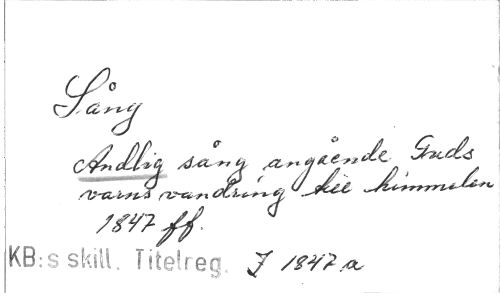 Sång
Andlig sång angående Guds
varns vandring till himmelen
1847 ff.
KB:s skill. Titelreg. J 1847 a